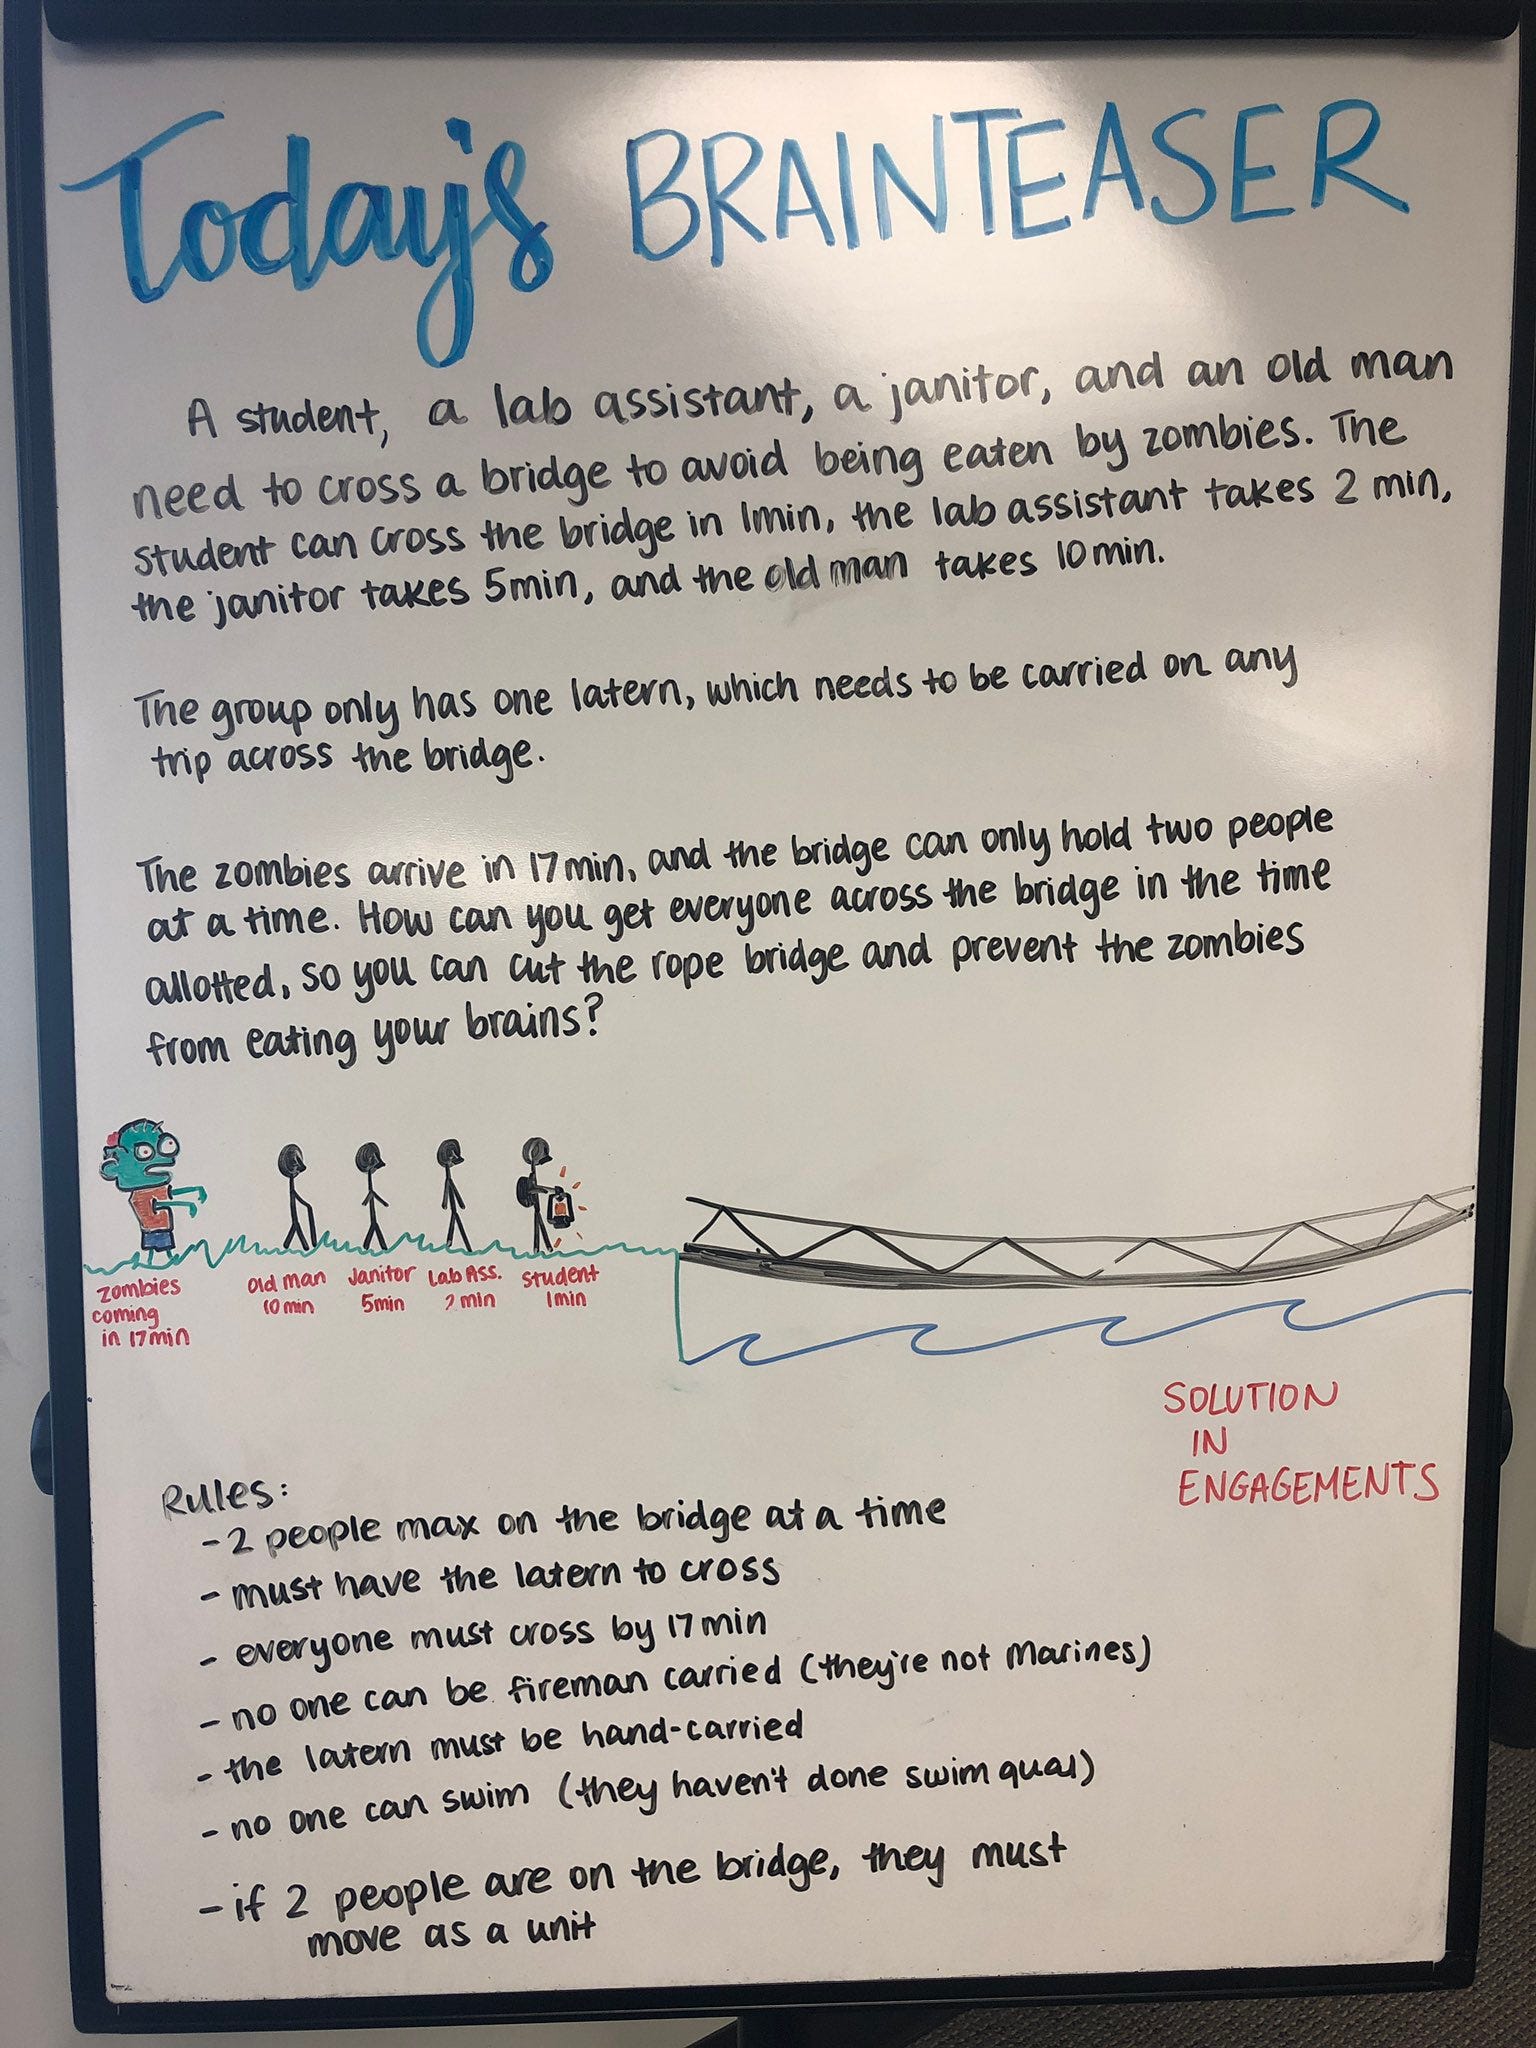 Today's BRAINTEASER
A student, a lab assistant, a janitor, and an old man
need to cross a bridge to avoid being eaten by zombies. The
student can cross the bridge in 1min, the lab assistant takes 2 min,
the janitor takes 5min, and the old man takes 10min.
The group only has one latern, which needs to be carried on any
trip across the bridge.
The zombies arrive in 17min, and the bridge can only hold two people
at a time. How can you get everyone across the bridge in the time
allotted, so you can cut the rope bridge and prevent the zombies
from eating your brains?
zombies
coming
in 17min
old man
10min
Janitor
5min
Lab Ass.
2min
student
1min
SOLUTION
IN
ENGAGEMENTS
Rules:
- 2 people max on the bridge at a time
- must have the latern to cross
- everyone must cross by 17min
- no one can be fireman carried (they're not Marines)
- the latern must be hand-carried
- no one can swim (they haven't done swim qual)
- if 2 people are on the bridge, they must
move as a unit